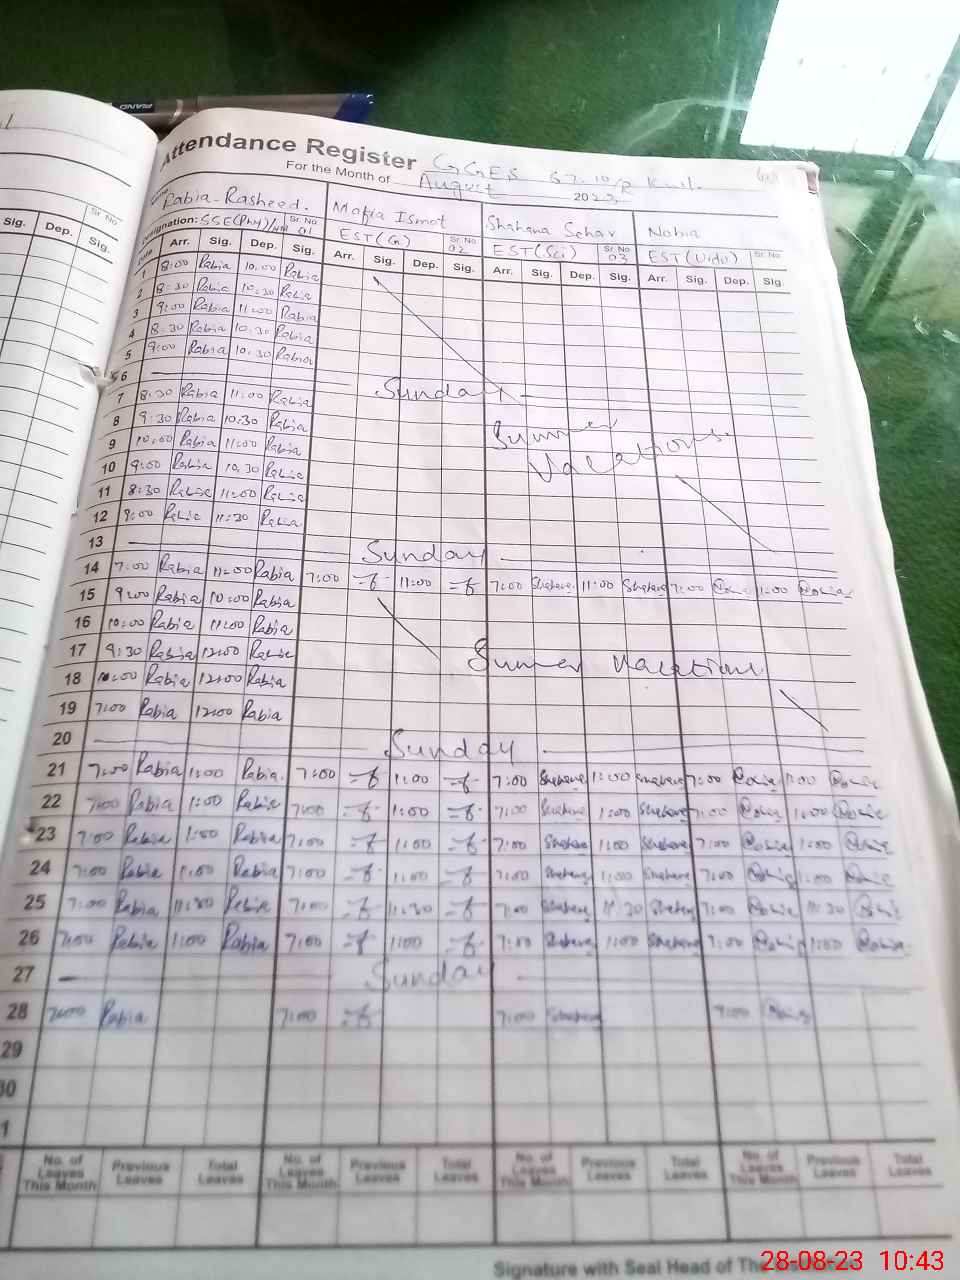 PIANO
Attendance Register GGES 57-10/R Kwl.
For the Month of August 2023
Rabia Rasheed. Mafia Ismat Shahana Sehar Nobia
Designation: SSE(PHY)/HM Sr. No 01 EST(G) Sr. No 02 EST(Sci) Sr. No 03 EST(Urdu) Sr. No
Sig. Dep. Sr. No Sig.
Date Arr. Sig. Dep. Sig. Arr. Sig. Dep. Sig. Arr. Sig. Dep. Sig. Arr. Sig. Dep. Sig.
1 8:00 Rabia 10:00 Rabia
2 8:30 Rabia 10:30 Rabia
3 9:00 Rabia 11:00 Rabia
4 8:30 Rabia 10:30 Rabia
5 9:00 Rabia 10:30 Rabia
6 Sunday
7 8:30 Rabia 11:00 Rabia
8 9:30 Rabia 10:30 Rabia
Summer
9 10:00 Rabia 11:00 Rabia
Vacations
10 9:00 Rabia 10:30 Rabia
11 8:30 Rabia 11:00 Rabia
12 9:00 Rabia 11:30 Rabia
13 Sunday
14 7:00 Rabia 11:00 Rabia 7:00 11:00 7:00 Shahana 11:00 Shahana 7:00 Nobia 11:00 Nobia
15 9:00 Rabia 10:00 Rabia
16 10:00 Rabia 11:00 Rabia
17 9:30 Rabia 12:00 Rabia
Summer Vacations
18 10:00 Rabia 12:00 Rabia
19 7:00 Rabia 12:00 Rabia
20 Sunday
21 7:00 Rabia 1:00 Rabia 7:00 1:00 7:00 Shahana 1:00 Shahana 7:00 Nobia 1:00 Nobia
22 7:00 Rabia 1:00 Rabia 7:00 1:00 7:00 Shahana 1:00 Shahana 7:00 Nobia 1:00 Nobia
23 7:00 Rabia 1:00 Rabia 7:00 1:00 7:00 Shahana 1:00 Shahana 7:00 Nobia 1:00 Nobia
24 7:00 Rabia 1:00 Rabia 7:00 1:00 7:00 Shahana 1:00 Shahana 7:00 Nobia 1:00 Nobia
25 7:00 Rabia 11:30 Rabia 7:00 11:30 7:00 Shahana 11:30 Shahana 7:00 Nobia 11:30 Nobia
26 7:00 Rabia 1:00 Rabia 7:00 1:00 7:00 Shahana 1:00 Shahana 7:00 Nobia 1:00 Nobia
27 Sunday
28 7:00 Rabia 7:00 7:00 Shahana 7:00 Nobia
29
30
1
No. of Leaves This Month Previous Leaves Total Leaves No. of Leaves This Month Previous Leaves Total Leaves No. of Leaves This Month Previous Leaves Total Leaves No. of Leaves This Month Previous Leaves Total Leaves
Signature with Seal Head of The
28-08-23 10:43